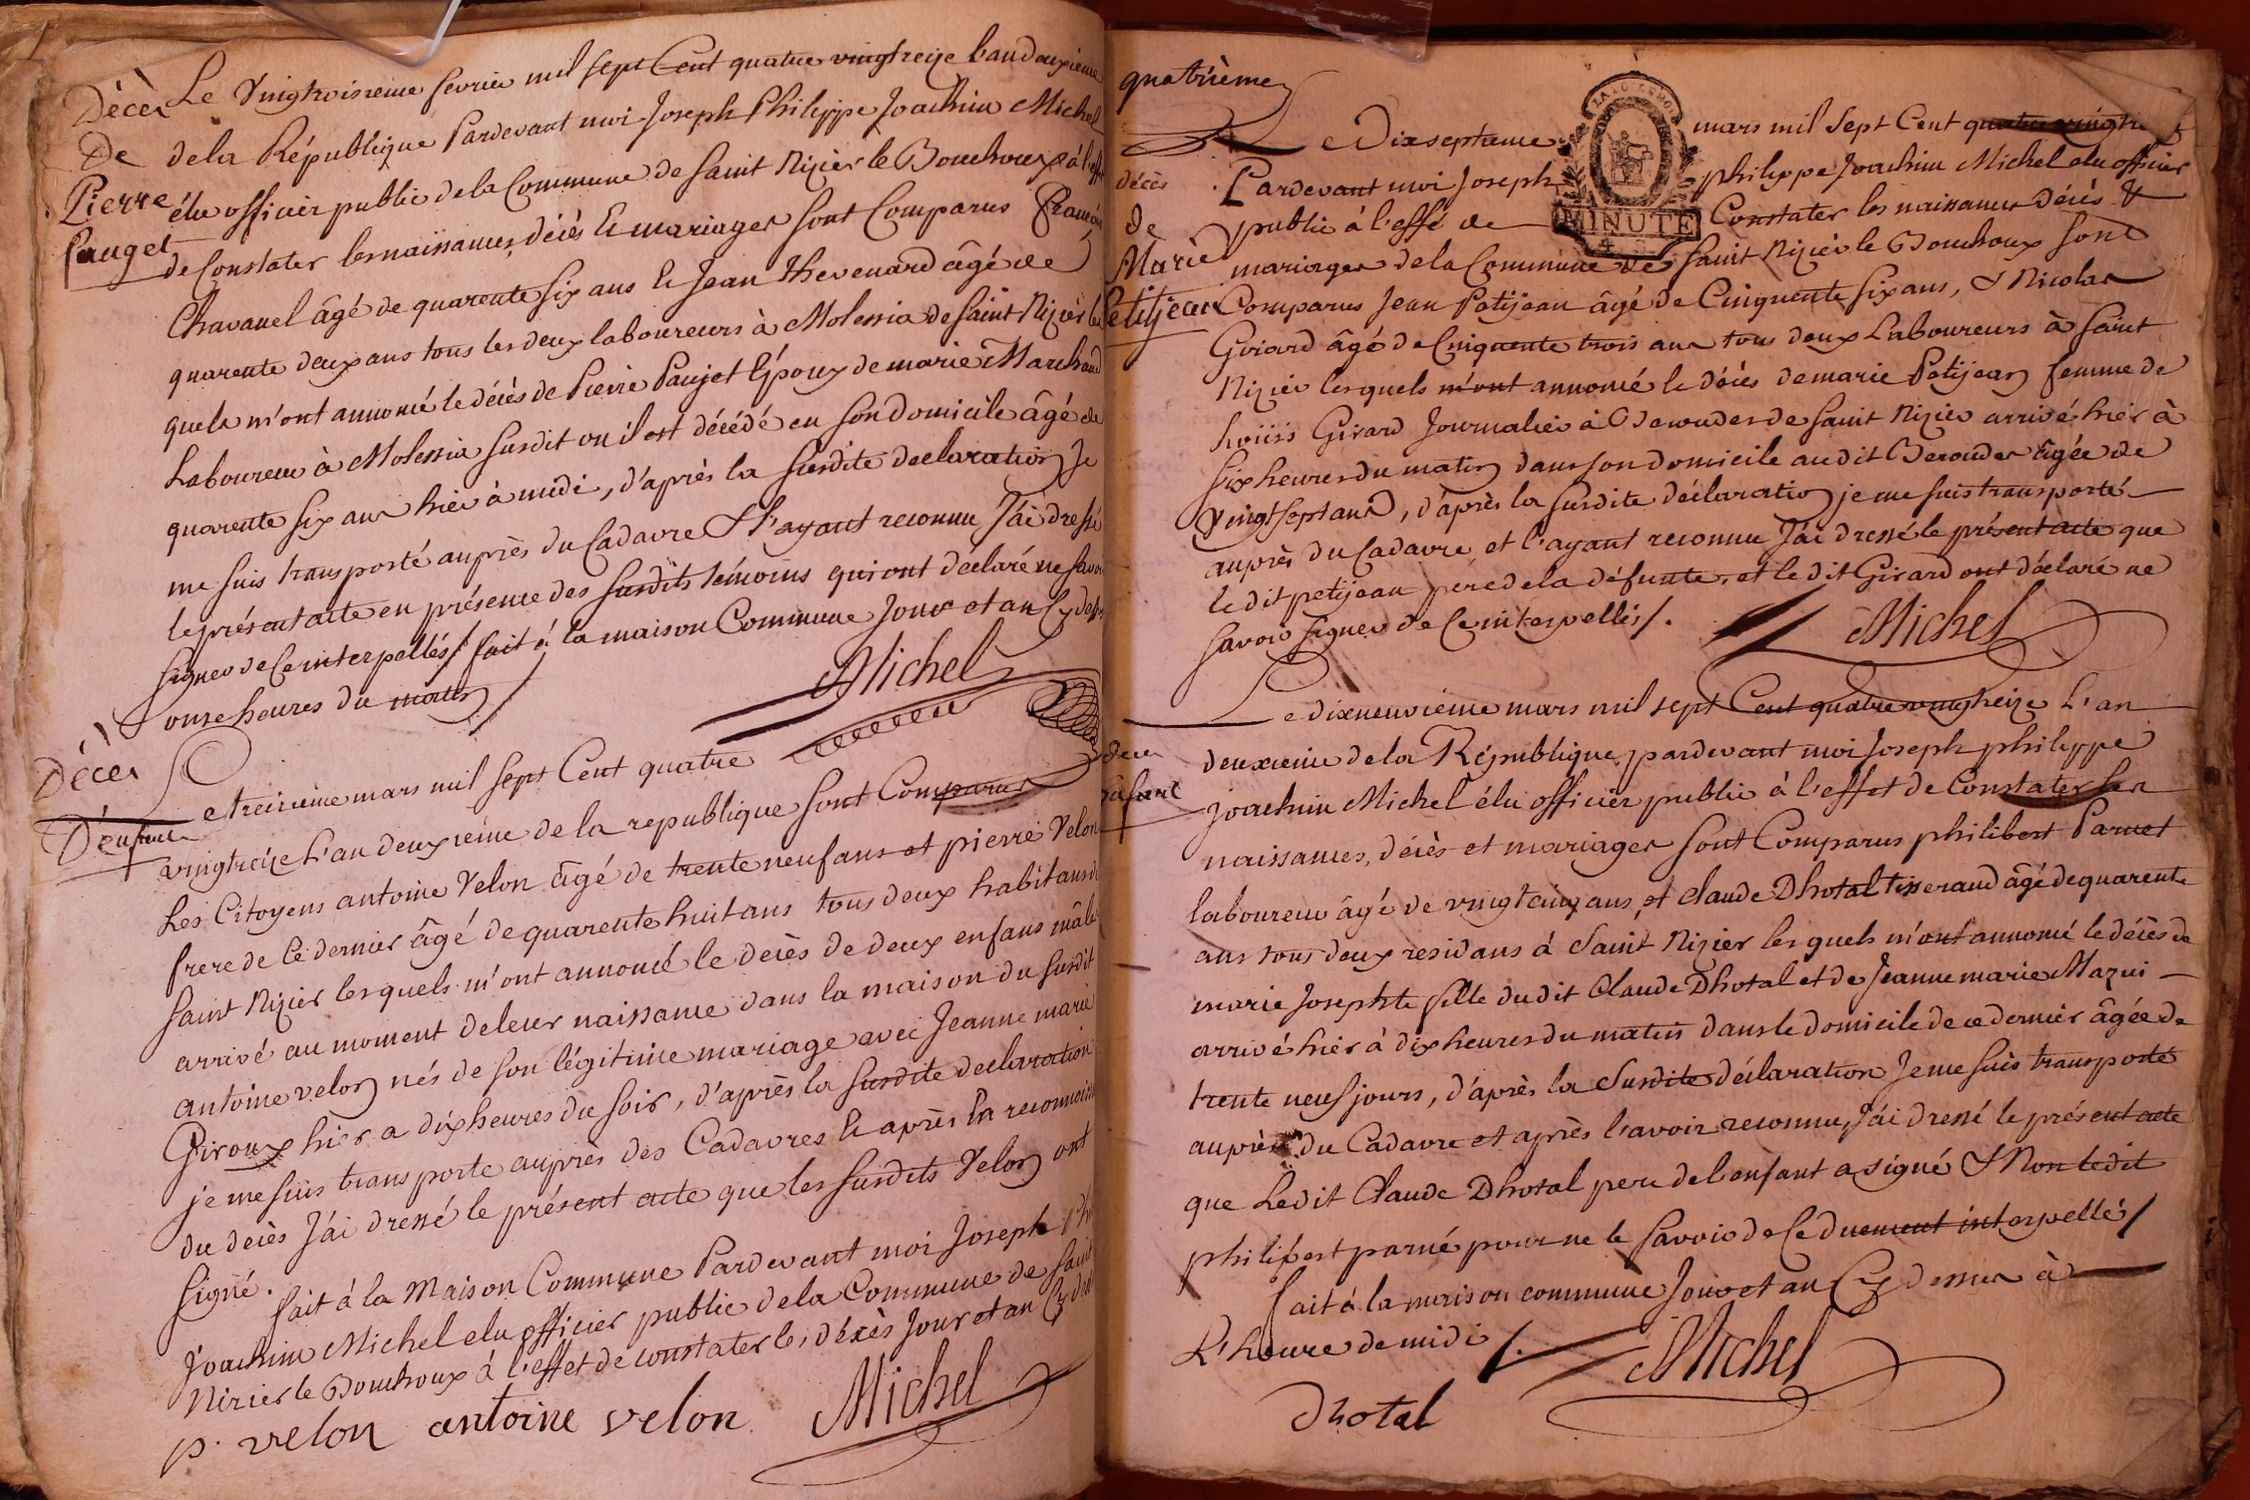 Décès
De
Pierre
Pauget
Le Vingtroisieme fevrier mil sept Cent quatre vingtreize l'an deuxieme
de la République Pardevant moi Joseph Philippe Joachim Michel
élu officier public de la Commune de Saint Nizier le Bouchoux à l'effet
de Constater les naissances, décès & mariages sont Comparus François
Chavanel âgé de quarente six ans & Jean Thevenard âgé de
quarente deux ans tous les deux laboureurs à Molessia de Saint Nizier les
quels m'ont annoncé le décès de Pierre Paujet Epoux de marie Marchand
Laboureur à Molessia susdit où il est décédé en son Domicile âgé de
quarente six ans hier à midi, d'après la susdite declaration Je
me suis transporté auprès du Cadavre & l'ayant reconnu J'ai dressé
le présent acte en présence des susdits témoins qui ont déclaré ne savoir
signer de Ce interpellés / fait à la maison Commune Jour et an Cy dessus
onze heures du matin /
Michel
Décès
D'enfants
Le treizième mars mil sept Cent quatre
vingtreize l'an deuxieme de la republique sont Comparus
Les Citoyens antoine Velon âgé de trente neuf ans et pierre Velon
frere de Ce dernier âgé de quarente huit ans tous deux habitans de
Saint Nizier lesquels m'ont annoncé le décès de deux enfans mâles
arrivé au moment de leur naissance dans la maison du susdit
antoine velon nés de son légitime mariage avec Jeanne marie
Giroux hier a dix heures du soir, d'après la susdite declaration
je me suis transporte auprès des Cadavres & après la reconnoissance
du décès J'ai dressé le présent acte que les susdits Velon ont
signé.
fait à la Maison Commune Pardevant moi Joseph Ph
Joachim Michel elu officier public de la Commune de Saint
Nizier le Bouchoux à l'effet de constater les décès Jour et an Cy dess
p. velon antoine velon Michel
quatrième
décès
de
Marie
Petitjean
Le Dixseptieme mars mil Sept Cent quatre vingtreize
Pardevant moi Joseph philippe Joachim Michel elu officier
public à l'effé de Constater les naissances Décès &
MINUTE
mariages de la Commune de Saint Nizier le Bouchoux sont
Comparus Jean Petijean âgé de Cinquente six ans, & Nicolas
Girard âgé de Cinquente trois ans tous deux Laboureurs à Saint
Nizier lesquels m'ont annoncé le décès de marie Petijean femme de
Louis Girard Journalier à Berouder de Saint Nizier arrivé hier à
six heures du matin dans son domicile audit Berouder âgée de
vingt sept ans, d'après la susdite déclaration je me suis transporté
auprès du Cadavre et l'ayant reconnu J'ai dressé le présent acte que
le dit petijean pere de la défunte, et le dit Girard ont déclaré ne
savoir signer de Ce interpellés /.
Michel
deces
d'enfant
Le dixneuvième mars mil sept Cent quatre vingtreize L'an
deuxieme de la République, pardevant moi Joseph philippe
Joachim Michel élu officier public à l'effet de Constater les
naissances, décès et mariages sont Comparus philibert Parnet
laboureur âgé de vingt cinq ans, et claude Dhotal tisserand âgé de quarente
ans tous deux residans à Saint Nizier les quels m'ont annoncé le décès de
marie Josephte fille du dit Claude Dhotal et de Jeanne marie Mazui
arrivé hier à dix heures du matin dans le domicile de ce dernier âgée de
trente neuf jours, d'après la susdite déclaration Je me suis transporté
auprès du Cadavre et après l'avoir reconnu, J'ai dressé le présent acte
que Ledit Claude Dhotal pere de l'enfant a signé & Non ledit
philibert parné pour ne le savoir de Ce duement interpellés /
fait à la maison commune Jour et an Cy dessus à
L'heure de midi /.
Michel
Dhotal